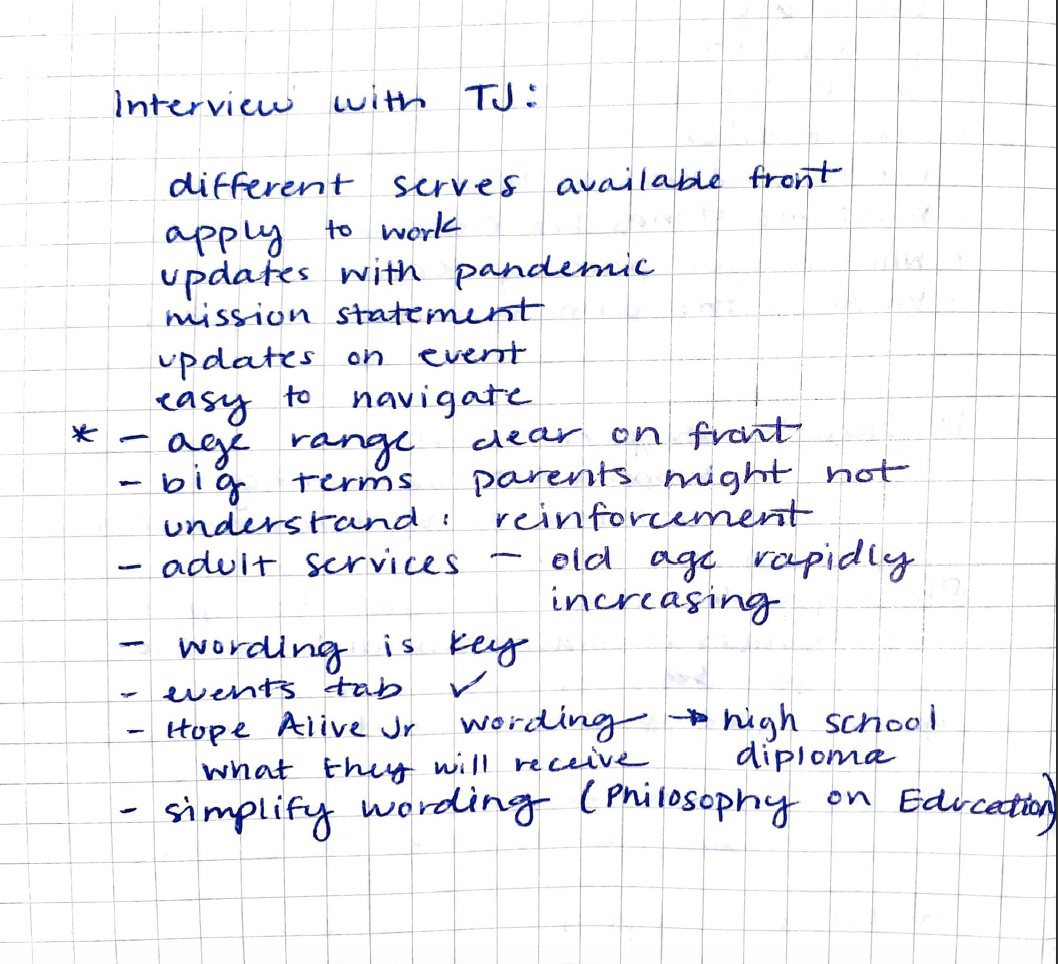 Interview with TJ:
different serves available front
apply to work
updates with pandemic
mission statement
updates on event
easy to navigate
* - age range clear on front
- big terms parents might not
understand: reinforcement
- adult services - old age rapidly
increasing
- wording is key
- events tab ✓
- Hope Alive Jr wording → high school
diploma
what they will receive
- simplify wording (Philosophy on Education)